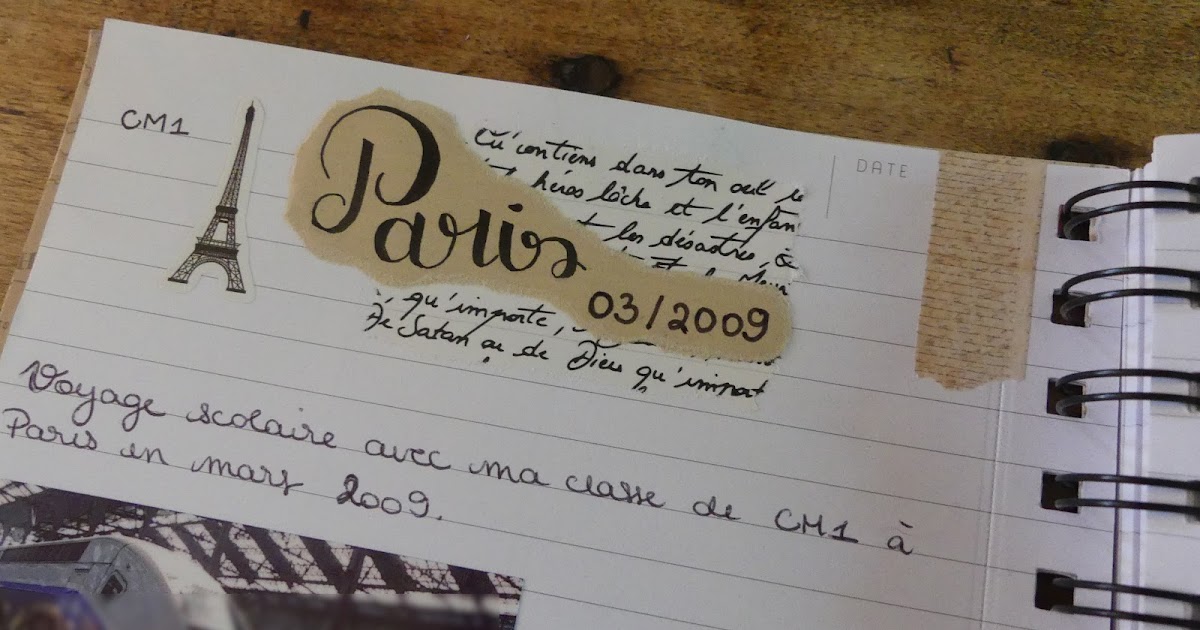 CM1
DATE
Paris
03/2009
Tu contiens dans ton oeil
héros lâche et l'enfan
les désastres, &
qu'importe,
De Satan ou de Dieu qu'import
Voyage scolaire avec ma classe de CM1 à
Paris en mars 2009.